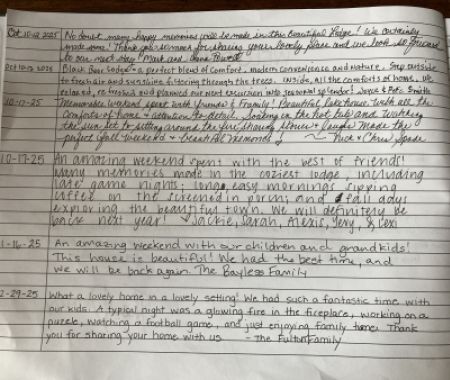 Oct 10-12 2025 No doubt many happy memories will be made in the Beautiful Lodge! We certainly
made some! Thank you for sharing your lovely place and we look forward
to our next stay! Mark and
Oct 10-13 2025 Black Bear Lodge - a perfect blend of comfort, modern conveniences and nature. Step outside
to fresh air and sunshine filtering through the trees. Inside, all the comforts of home. We
relaxed, refreshed and planned our next excursion into seasonal splendor! Joyce & Pete Smith
10-17-25 Memorable weekend spent with friends & family! Beautiful lake house with all the
comforts of home & attention to detail. Soaking in the hot tub and watching
the sun set to sitting around the fire sharing stories & laughs made the
perfect fall weekend & beautiful memories! ~ Rick & Chris
10-17-25 An amazing weekend spent with the best of friends!
Many memories made in the coziest lodge, including
late game nights, long, easy mornings sipping
coffee on the screened in porch, and fall days
exploring the beautiful town. We will definitely be
back next year! Jackie, Sarah, Alexis, Jeny, & Lexi
1-16-25 An amazing weekend with our children and grandkids!
This house is beautiful! We had the best time, and
we will be back again. The Bayless Family
2-29-25 What a lovely home in a lovely setting! We had such a fantastic time with
our kids. A typical night was a glowing fire in the fireplace, working on a
puzzle, watching a football game, and just enjoying family time. Thank
you for sharing your home with us - The Fulton Family